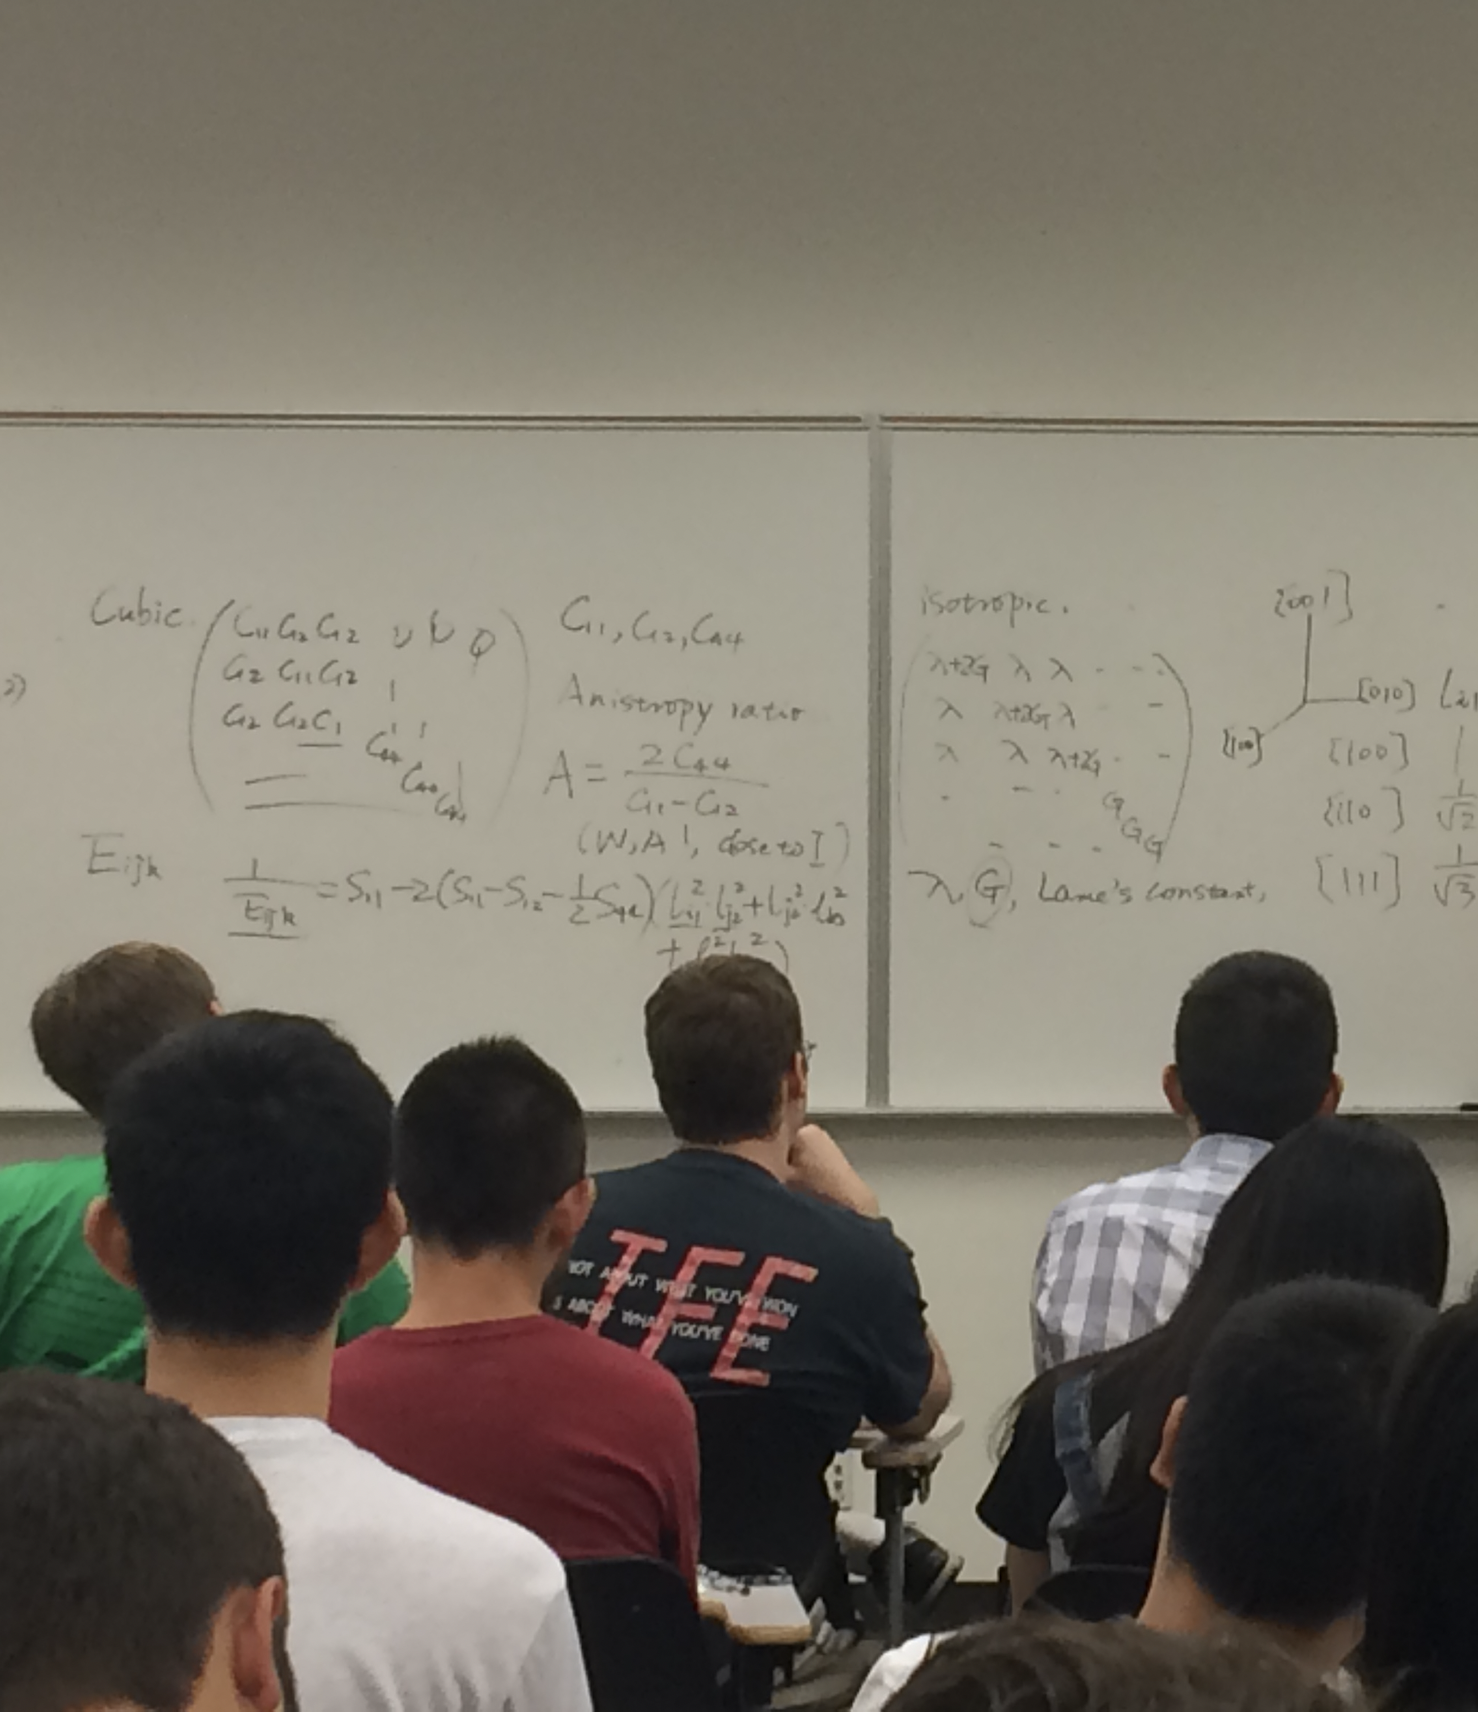 Cubic. C11 C12 C12
C12 C11 C12
C12 C12 C11
C44
C44
C44
C11, C12, C44
Anistropy ratio
A = 2C44 / C11 - C12
(W, Al, close to 1)
Eijk
1 / Eijk = S11 - 2(S11 - S12 - 1/2 S44)(li1² lj2² + lj2² lk3²
isotropic.
λ+2G λ λ - - -
λ λ+2G λ -
λ λ λ+2G - -
G
G
G
λ, G, Lame's constant,
[001]
[010]
[100]
[100] 1
[110] 1/√2
[111] 1/√3
TFE
NOT ABOUT WHAT YOU'VE WON
S ABOUT WHAT YOU'VE DONE